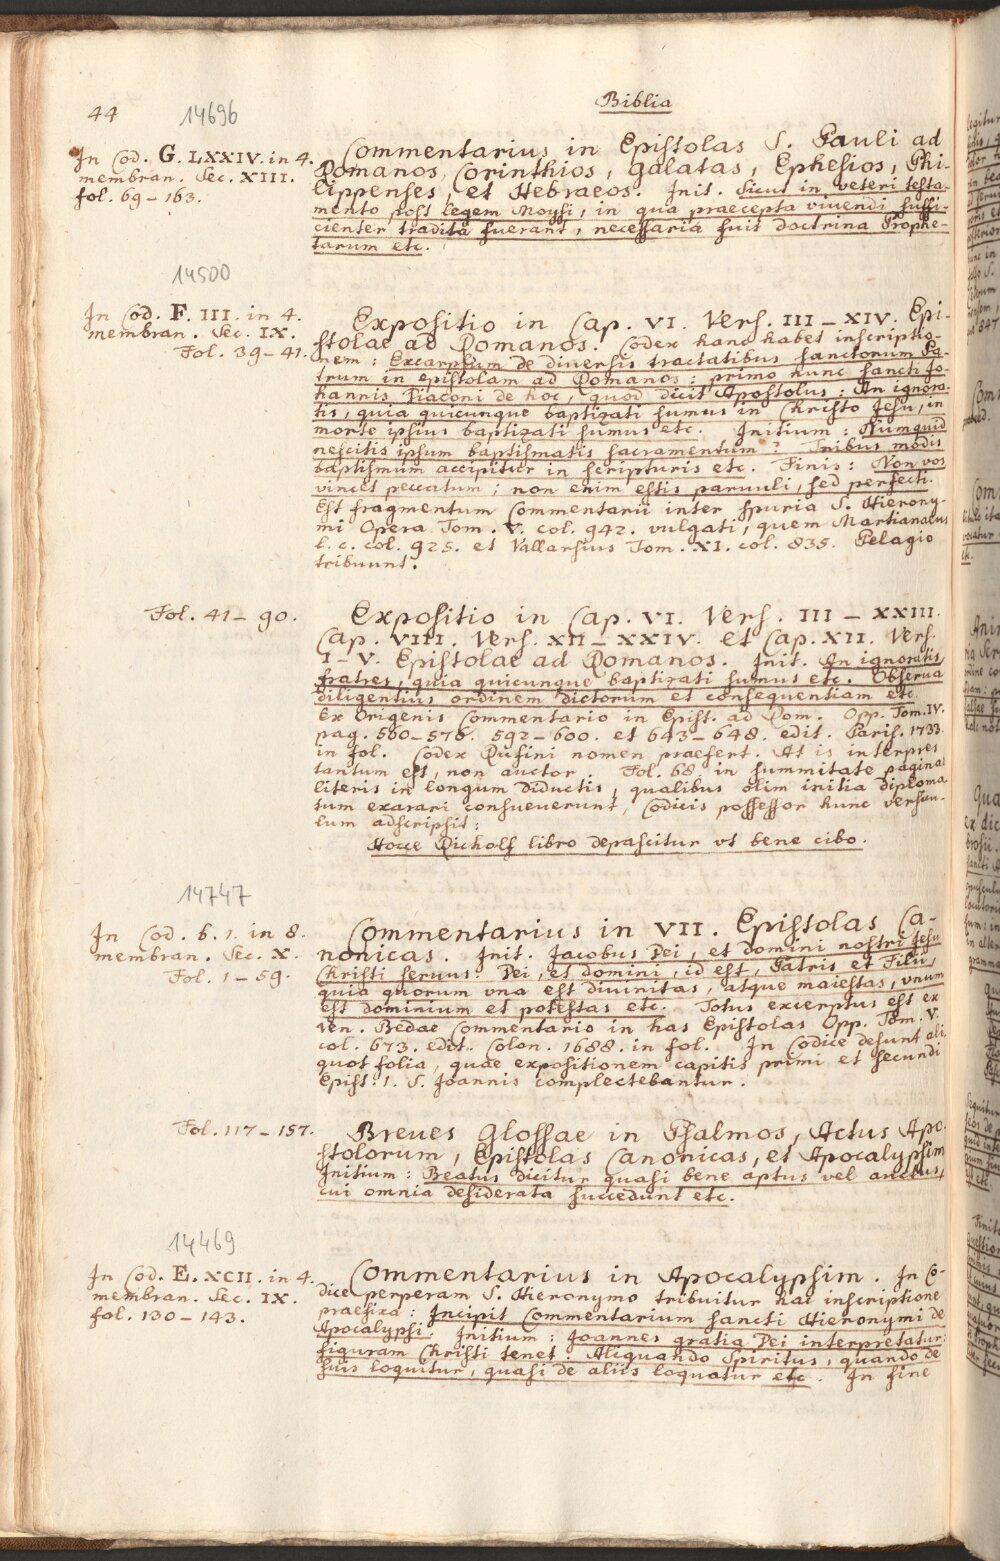 44
14696
Biblia
In Cod. G. LXXIV. in 4.
membran. Sec. XIII.
fol. 69 – 163.
Commentarius in Epistolas S. Pauli ad
Romanos, Corinthios, Galatas, Ephesios, Phi-
lippenses, et Hebraeos. Init. Sicut in veteri testa-
mento post legem Moysi, in qua praecepta viuendi suffi-
cienter tradita fuerant, necessaria fuit doctrina Prophe-
tarum etc.
14500
In Cod. F. III. in 4.
membran. Sec. IX.
Fol. 39 – 41.
Expositio in Cap. VI. Vers. III – XIV. Epi-
stolae ad Romanos. Codex hanc habet inscriptio-
nem: Excarpsum de diuersis tractatibus sanctorum Pa-
trum in epistolam ad Romanos: primo hunc sancti Jo-
hannis Diaconi de hoc, quod dicit Apostolus: An ignora-
tis, quia quicunque baptizati sumus in Christo Jesu, in
morte ipsius baptizati sumus etc. Initium: Numquid
nescitis ipsum baptismatis sacramentum? Tribus modis
baptismum accipitur in scripturis etc. Finis: Non vos
vincet peccatum; non enim estis paruuli, sed perfecti.
Est fragmentum Commentarii inter spuria S. Hierony-
mi Opera Tom. V. col. 942. vulgati, quem Martianaeus
l. c. col. 925. et Vallarsius Tom. XI. col. 835. Pelagio
tribuunt.
Fol. 41 – 90.
Expositio in Cap. VI. Vers. III – XXIII.
Cap. VIII. Vers. XII – XXIV. et Cap. XII. Vers.
I – V. Epistolae ad Romanos. Init. An ignoratis,
fratres, quia quicunque baptizati sumus etc. Obserua
diligentius ordinem dictorum et consequentiam etc.
Ex Origenis Commentario in Epist. ad Rom. Opp. Tom. IV.
pag. 560 – 576. 592 – 600. et 643 – 648. edit. Paris. 1733.
in fol. Codex Rufini nomen praefert. At is interpres
tantum est, non auctor. Fol. 68. in summitate paginae
literis in longum diductis, qualibus olim initia diploma-
tum exarari consueuerunt, Codicis possessor hunc versicu-
lum adscripsit:
Hocce Richolf libro depascitur vt bene cibo.
14747
In Cod. b. 1. in 8.
membran. Sec. X.
Fol. 1 – 59.
Commentarius in VII. Epistolas Ca-
nonicas. Init. Jacobus Dei, et domini nostri Jesu
Christi seruus. Dei, et domini, id est, Patris et Filii,
quia quorum vna est diuinitas, atque maiestas, vnum
est dominium et potestas etc. Totus excerptus est ex
ven. Bedae Commentario in has Epistolas Opp. Tom. V.
col. 673. edit. Colon. 1688. in fol. In Codice desunt ali-
quot folia, quae expositionem capitis primi et secundi
Epist. 1. S. Joannis complectebantur.
Fol. 117 – 157.
Breues Glossae in Psalmos, Actus Apo-
stolorum, Epistolas Canonicas, et Apocalypsim
Initium: Beatus dicitur quasi bene aptus vel auctus,
cui omnia desiderata succedunt etc.
14469
In Cod. E. XCII. in 4.
membran. Sec. IX.
fol. 130 – 143.
Commentarius in Apocalypsim. In Co-
dice perperam S. Hieronymo tribuitur hac inscriptione
praefixa: Incipit Commentarium sancti Hieronymi de
Apocalypsi. Initium: Joannes gratia Dei interpretatur:
figuram Christi tenet. Aliquando Spiritus, quando de
suis loquitur, quasi de aliis loquatur etc. In fine